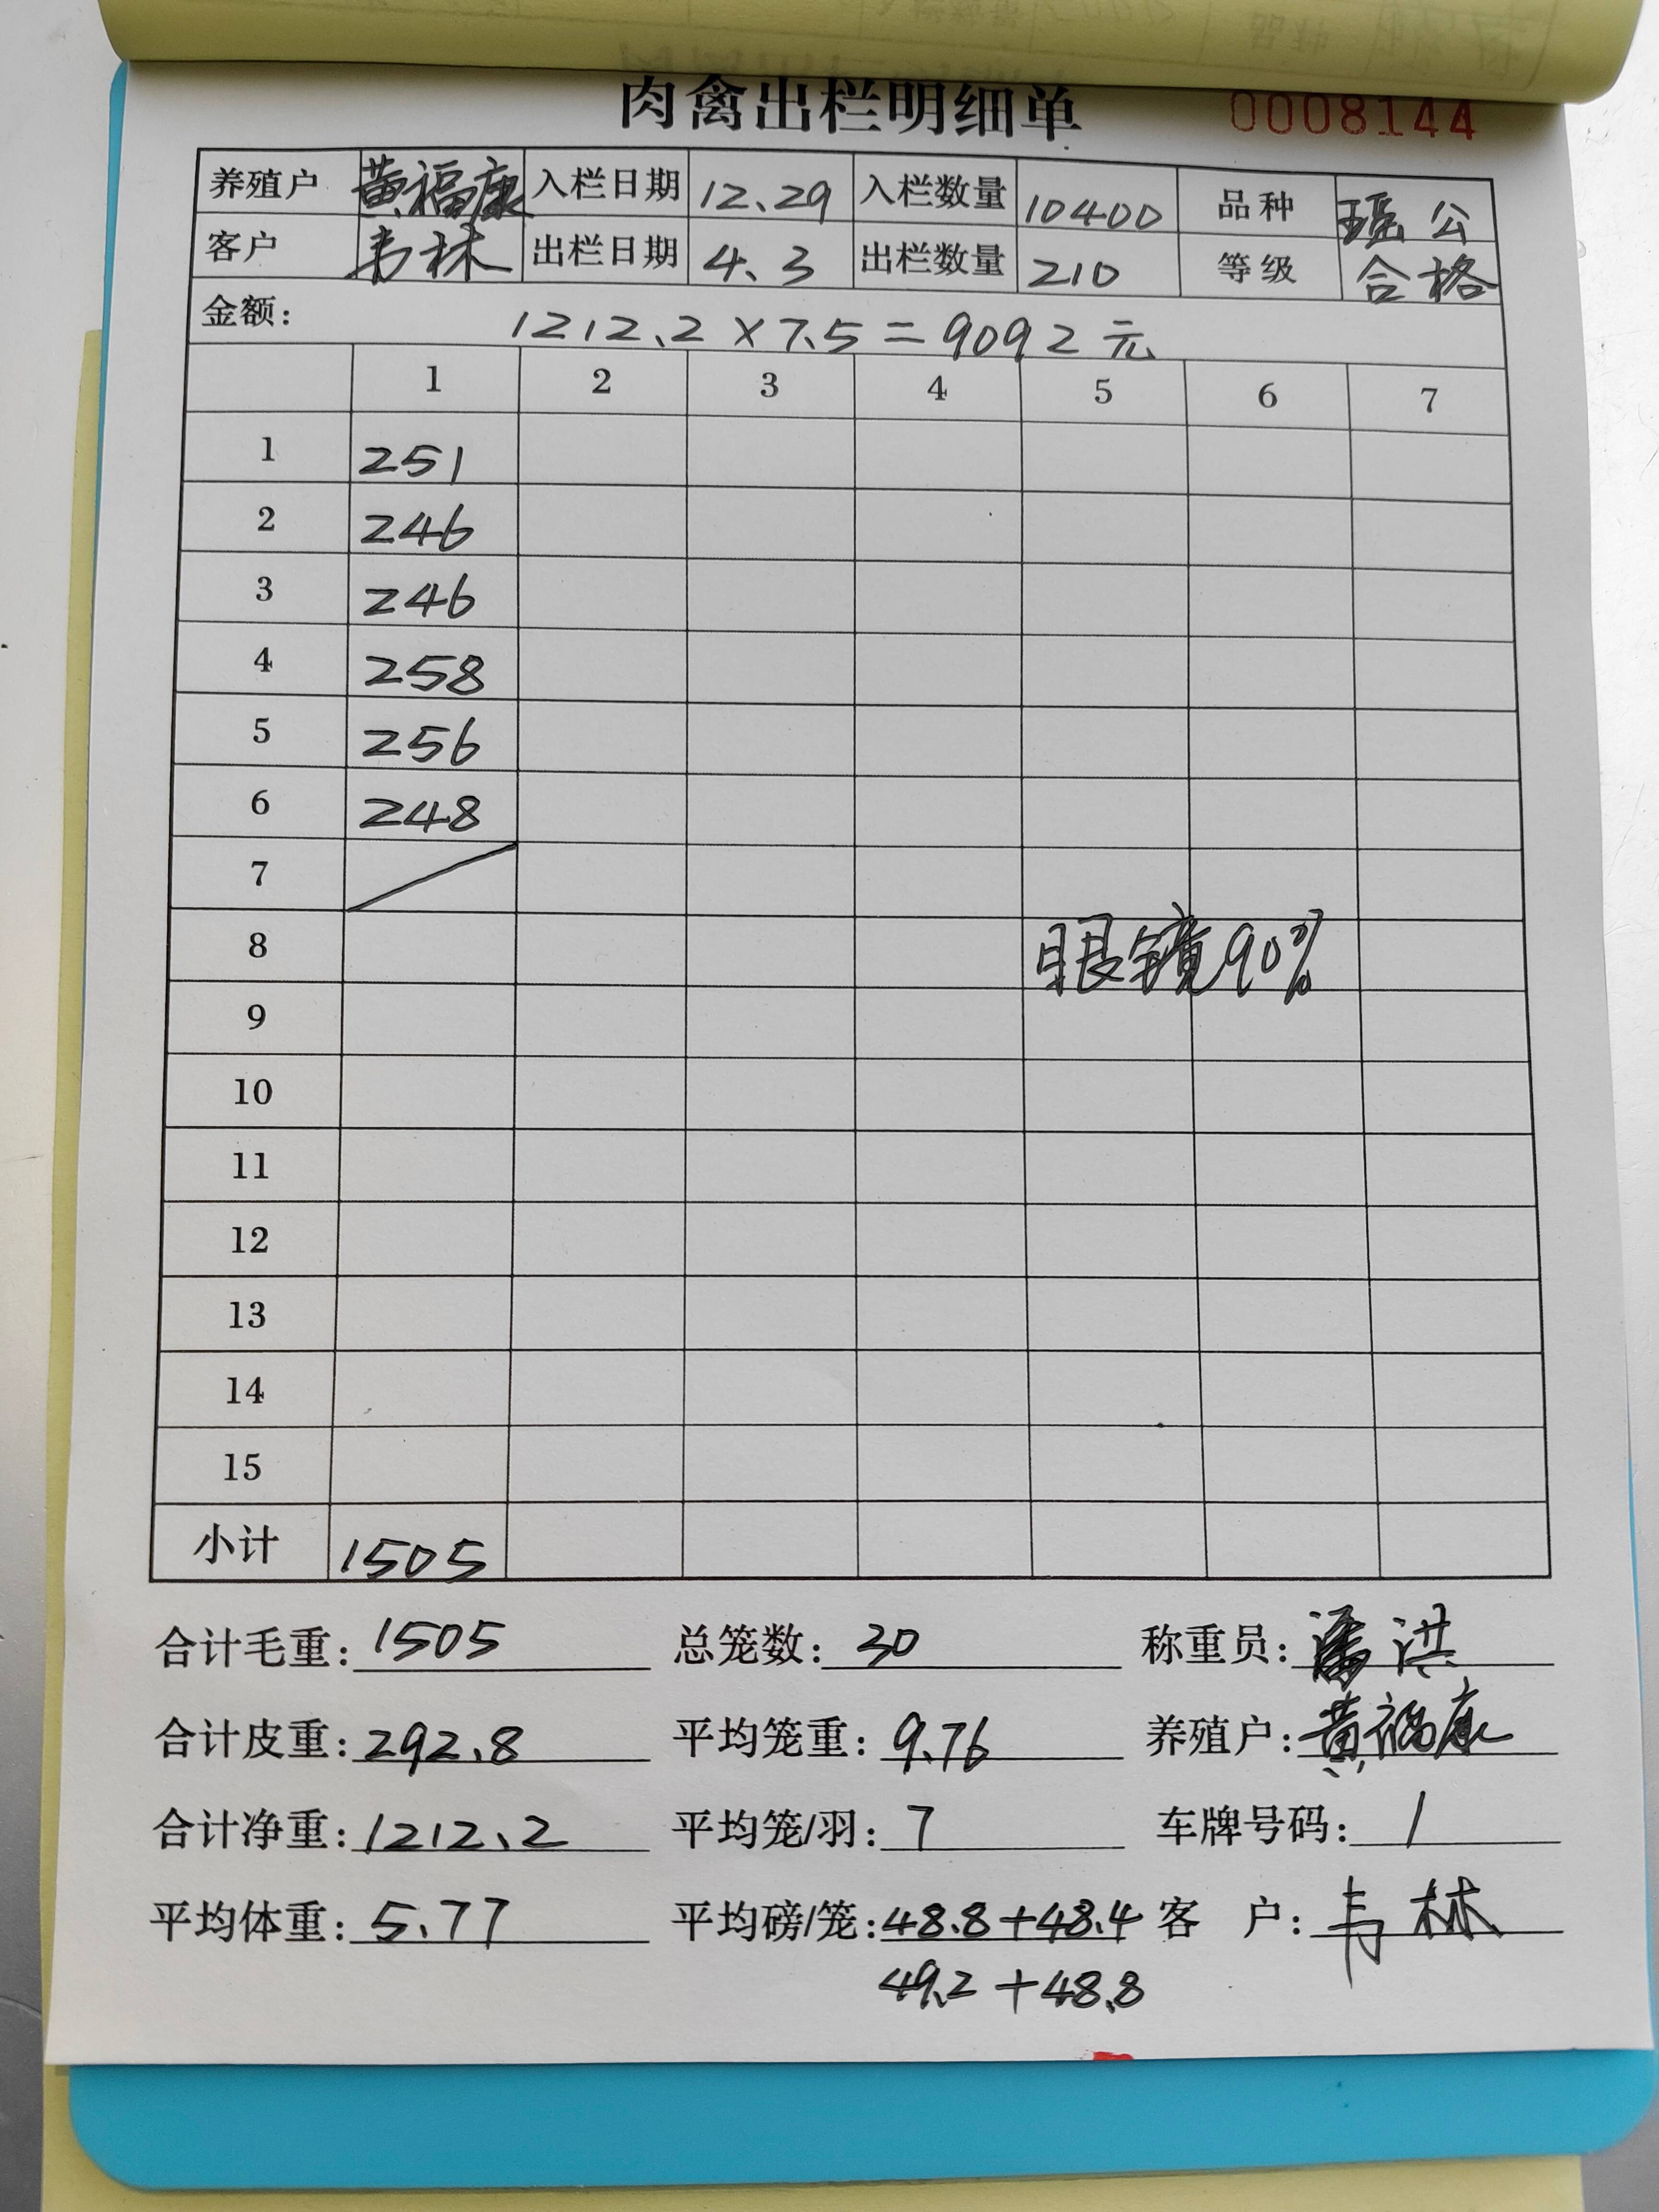 肉禽出栏明细单 0008144
养殖户 黄福康 入栏日期 12.29 入栏数量 10400 品种 瑶公
客户 韦林 出栏日期 4.3 出栏数量 210 等级 合格
金额: 1212.2×7.5=9092元
1 2 3 4 5 6 7
1 251
2 246
3 246
4 258
5 256
6 248
7
8 眼镜90%
9
10
11
12
13
14
15
小计 1505
合计毛重: 1505 总笼数: 30 称重员: 潘洪
合计皮重: 292.8 平均笼重: 9.76 养殖户: 黄福康
合计净重: 1212.2 平均笼/羽: 7 车牌号码: /
平均体重: 5.77 平均磅/笼: 48.8+48.4 客 户: 韦林
49.2+48.8